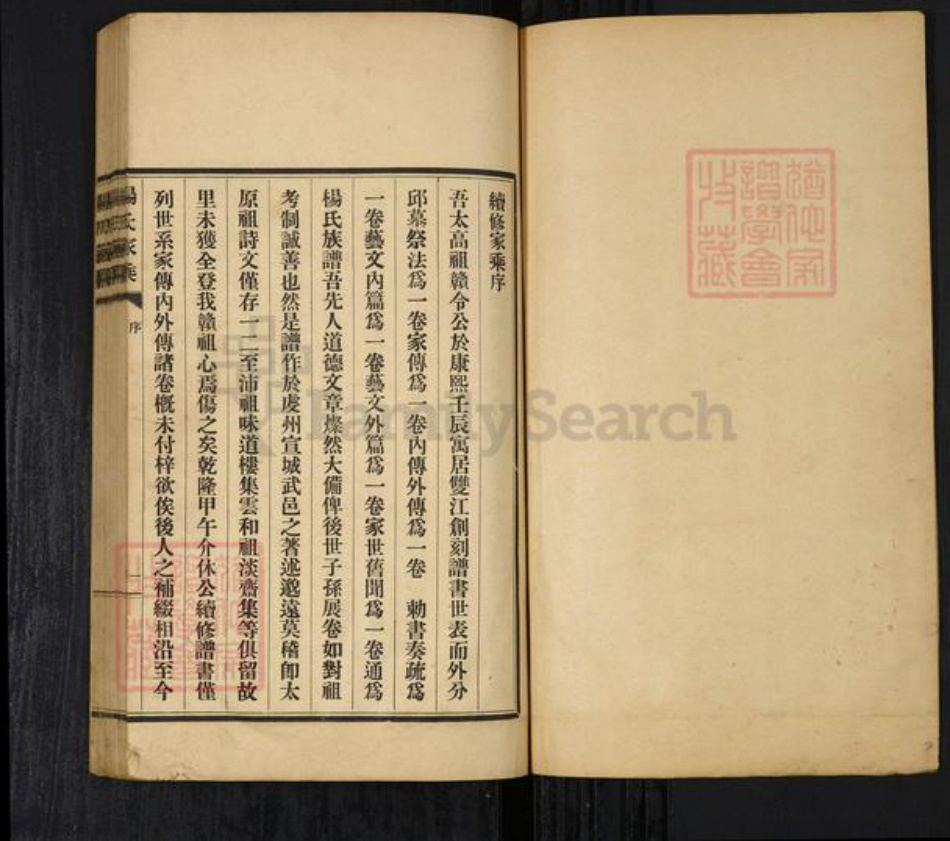 續修家乘序
吾太高祖贛令公於康熙壬辰寓居雙江創刻譜書世表而外分
邱墓祭法爲一卷家傳爲一卷內傳外傳爲一卷　勅書奏疏爲
一卷藝文內篇爲一卷藝文外篇爲一卷家世舊聞爲一卷通爲
楊氏族譜吾先人道德文章燦然大備俾後世子孫展卷如對祖
考制誠善也然是譜作於虔州宣城武邑之著述邈遠莫稽卽太
原祖詩文僅存一二至沛祖味道樓集雲和祖淡齋集等俱留故
里未獲全登我贛祖心焉傷之矣乾隆甲午介休公續修譜書僅
列世系家傳內外傳諸卷概未付梓欲俟後人之補綴相沿至今
楊氏家乘
序
一
FamilySearch
譜學會
收藏